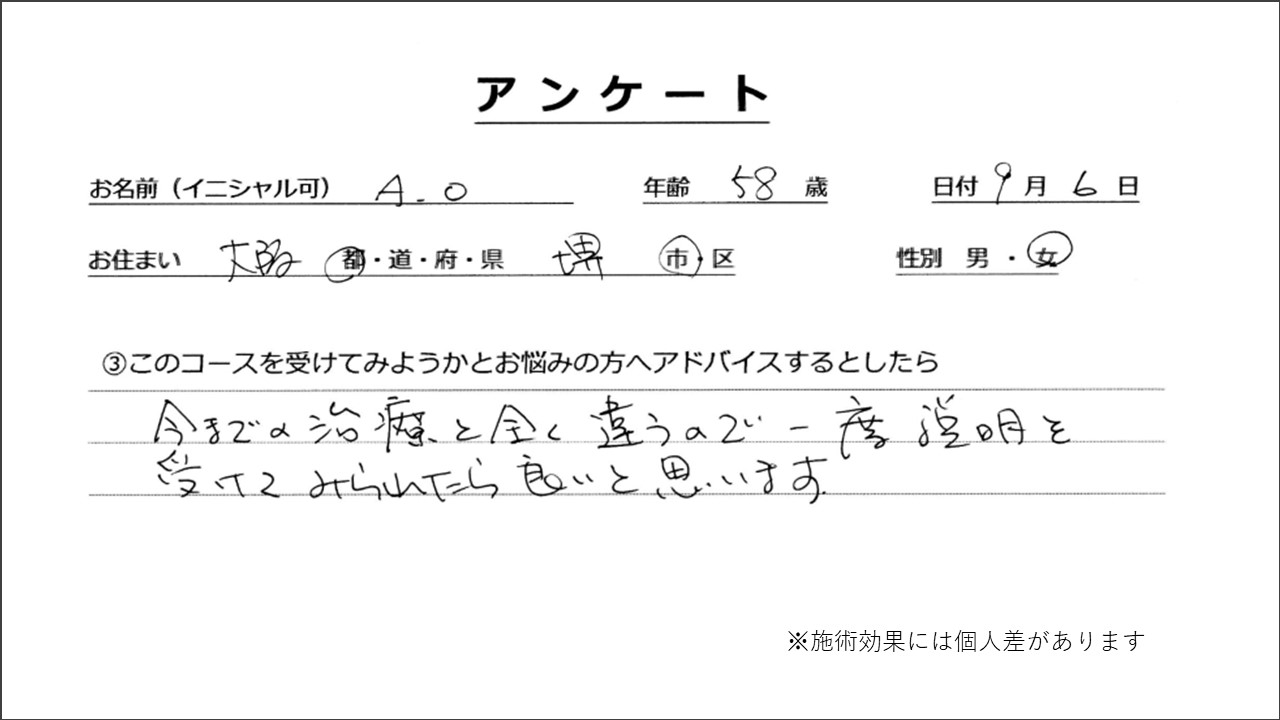 アンケート
お名前（イニシャル可） A.O 年齢 58 歳 日付 9月 6日
お住まい 大阪 都・道・府・県 堺 市・区 性別 男・女
③このコースを受けてみようかとお悩みの方へアドバイスするとしたら
今までの治療と全く違うので一度説明を
受けてみられたら良いと思います.
※施術効果には個人差があります